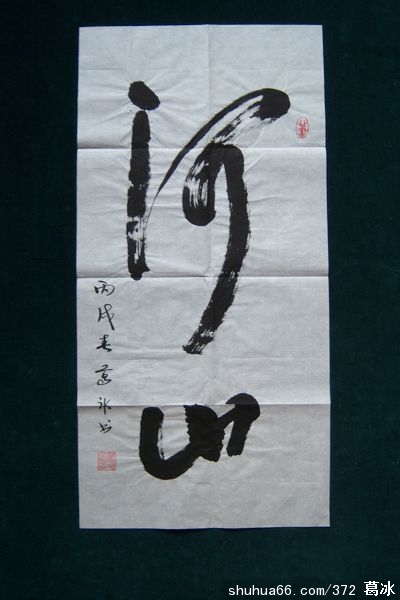 河山
丙戌春葛冰书
shuhua66.com/372 葛冰